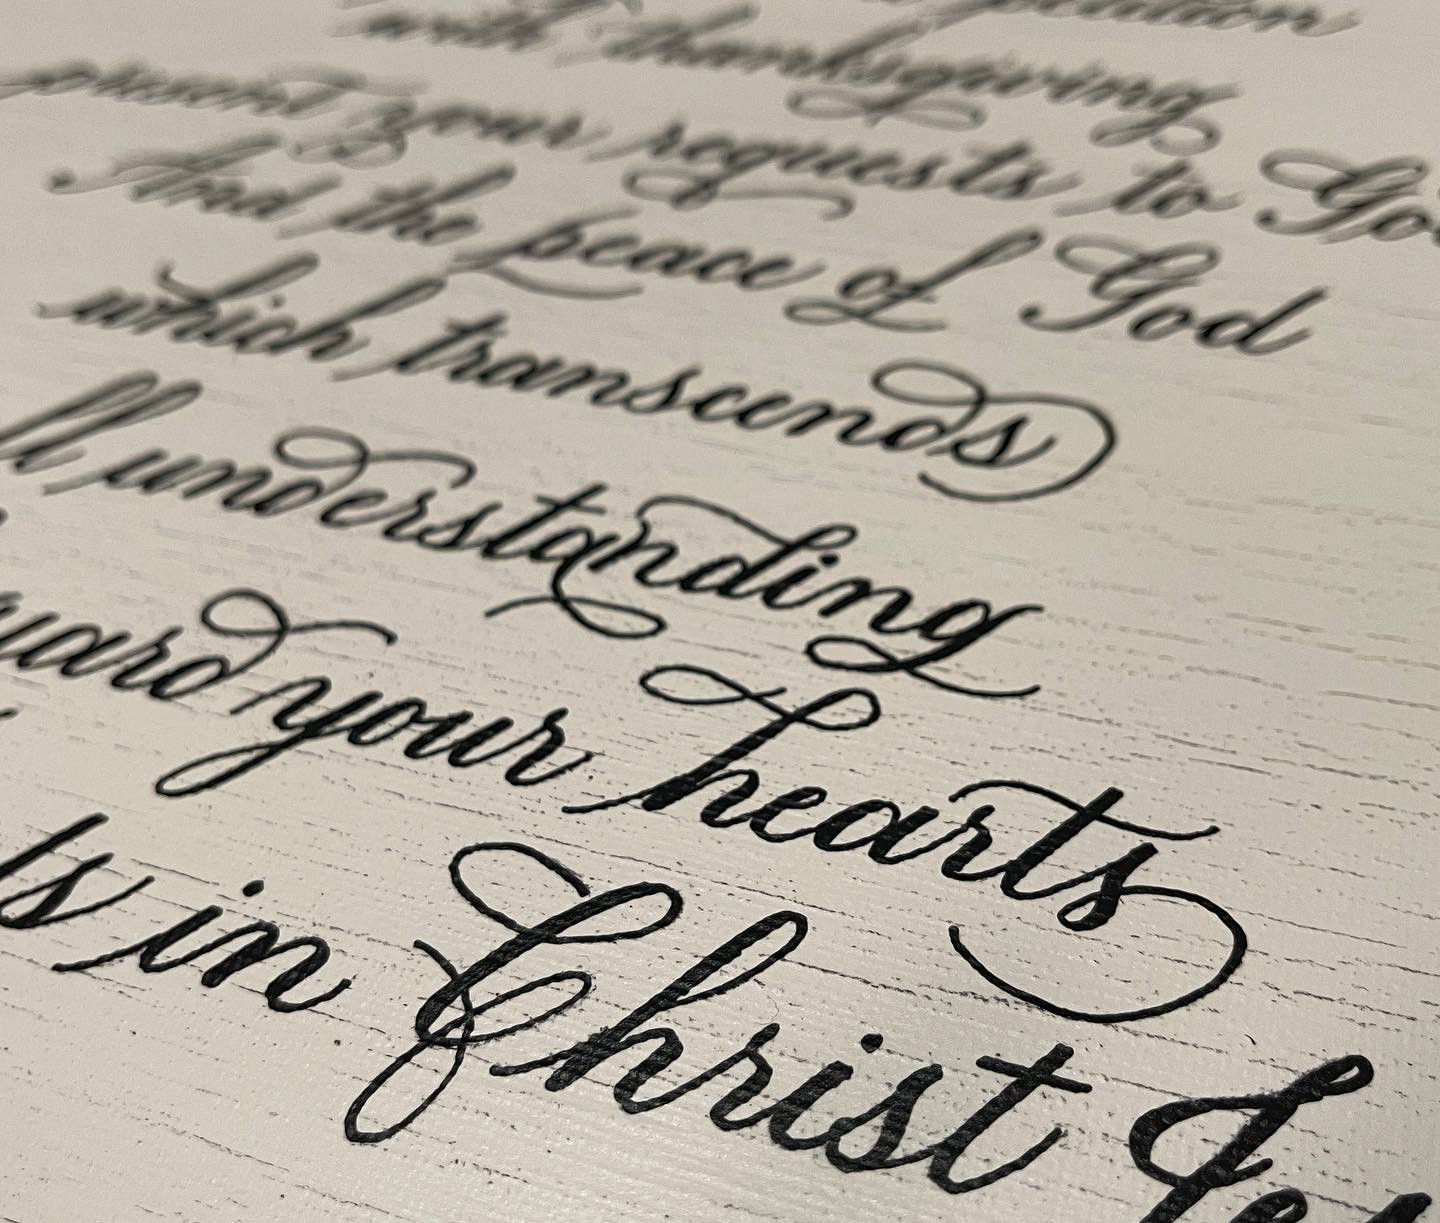 with thanksgiving
present your requests to Go
And the peace of God
which transcends
ll understanding
uard your hearts
ds in Christ Je